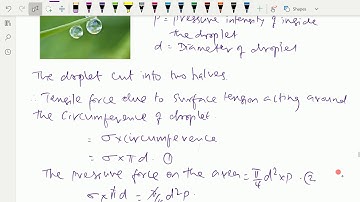 P = pressure intensity of inside
the droplet
d = Diameter of droplet
The droplet cut into two halves.
∴ Tensile force due to surface tension acting around
the circumference of droplet
= σ x circumference
= σ x π d. ①
The pressure force on the area = π/4 d² x P. ②
σ x π d = π/4 d² P.